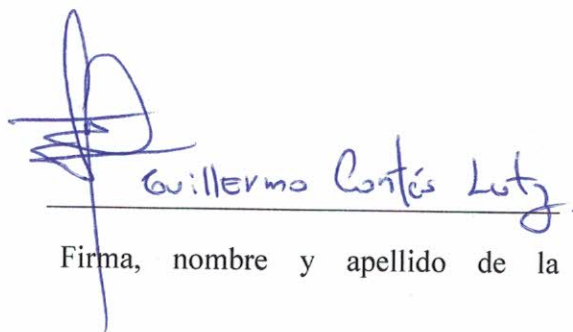 Guillermo Cortés Lutz.
Firma, nombre y apellido de la